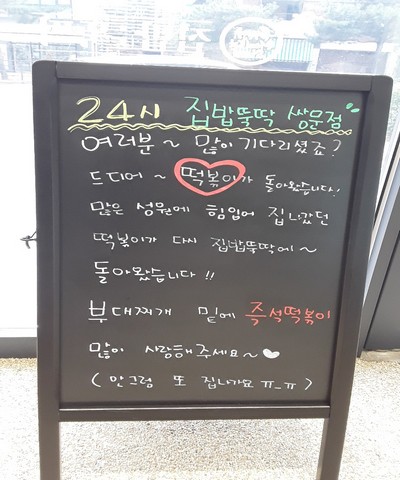 24시 집밥뚝딱 쌍문점
여러분~ 많이 기다리셨죠?
드디어~ 떡볶이가 돌아왔습니다!
많은 성원에 힘입어 집나갔던
떡볶이가 다시 집밥뚝딱에~
돌아왔습니다!!
부대찌개 밑에 즉석떡볶이
많이 사랑해주세요~
(안그럼 또 집나가요 ㅠ_ㅠ)